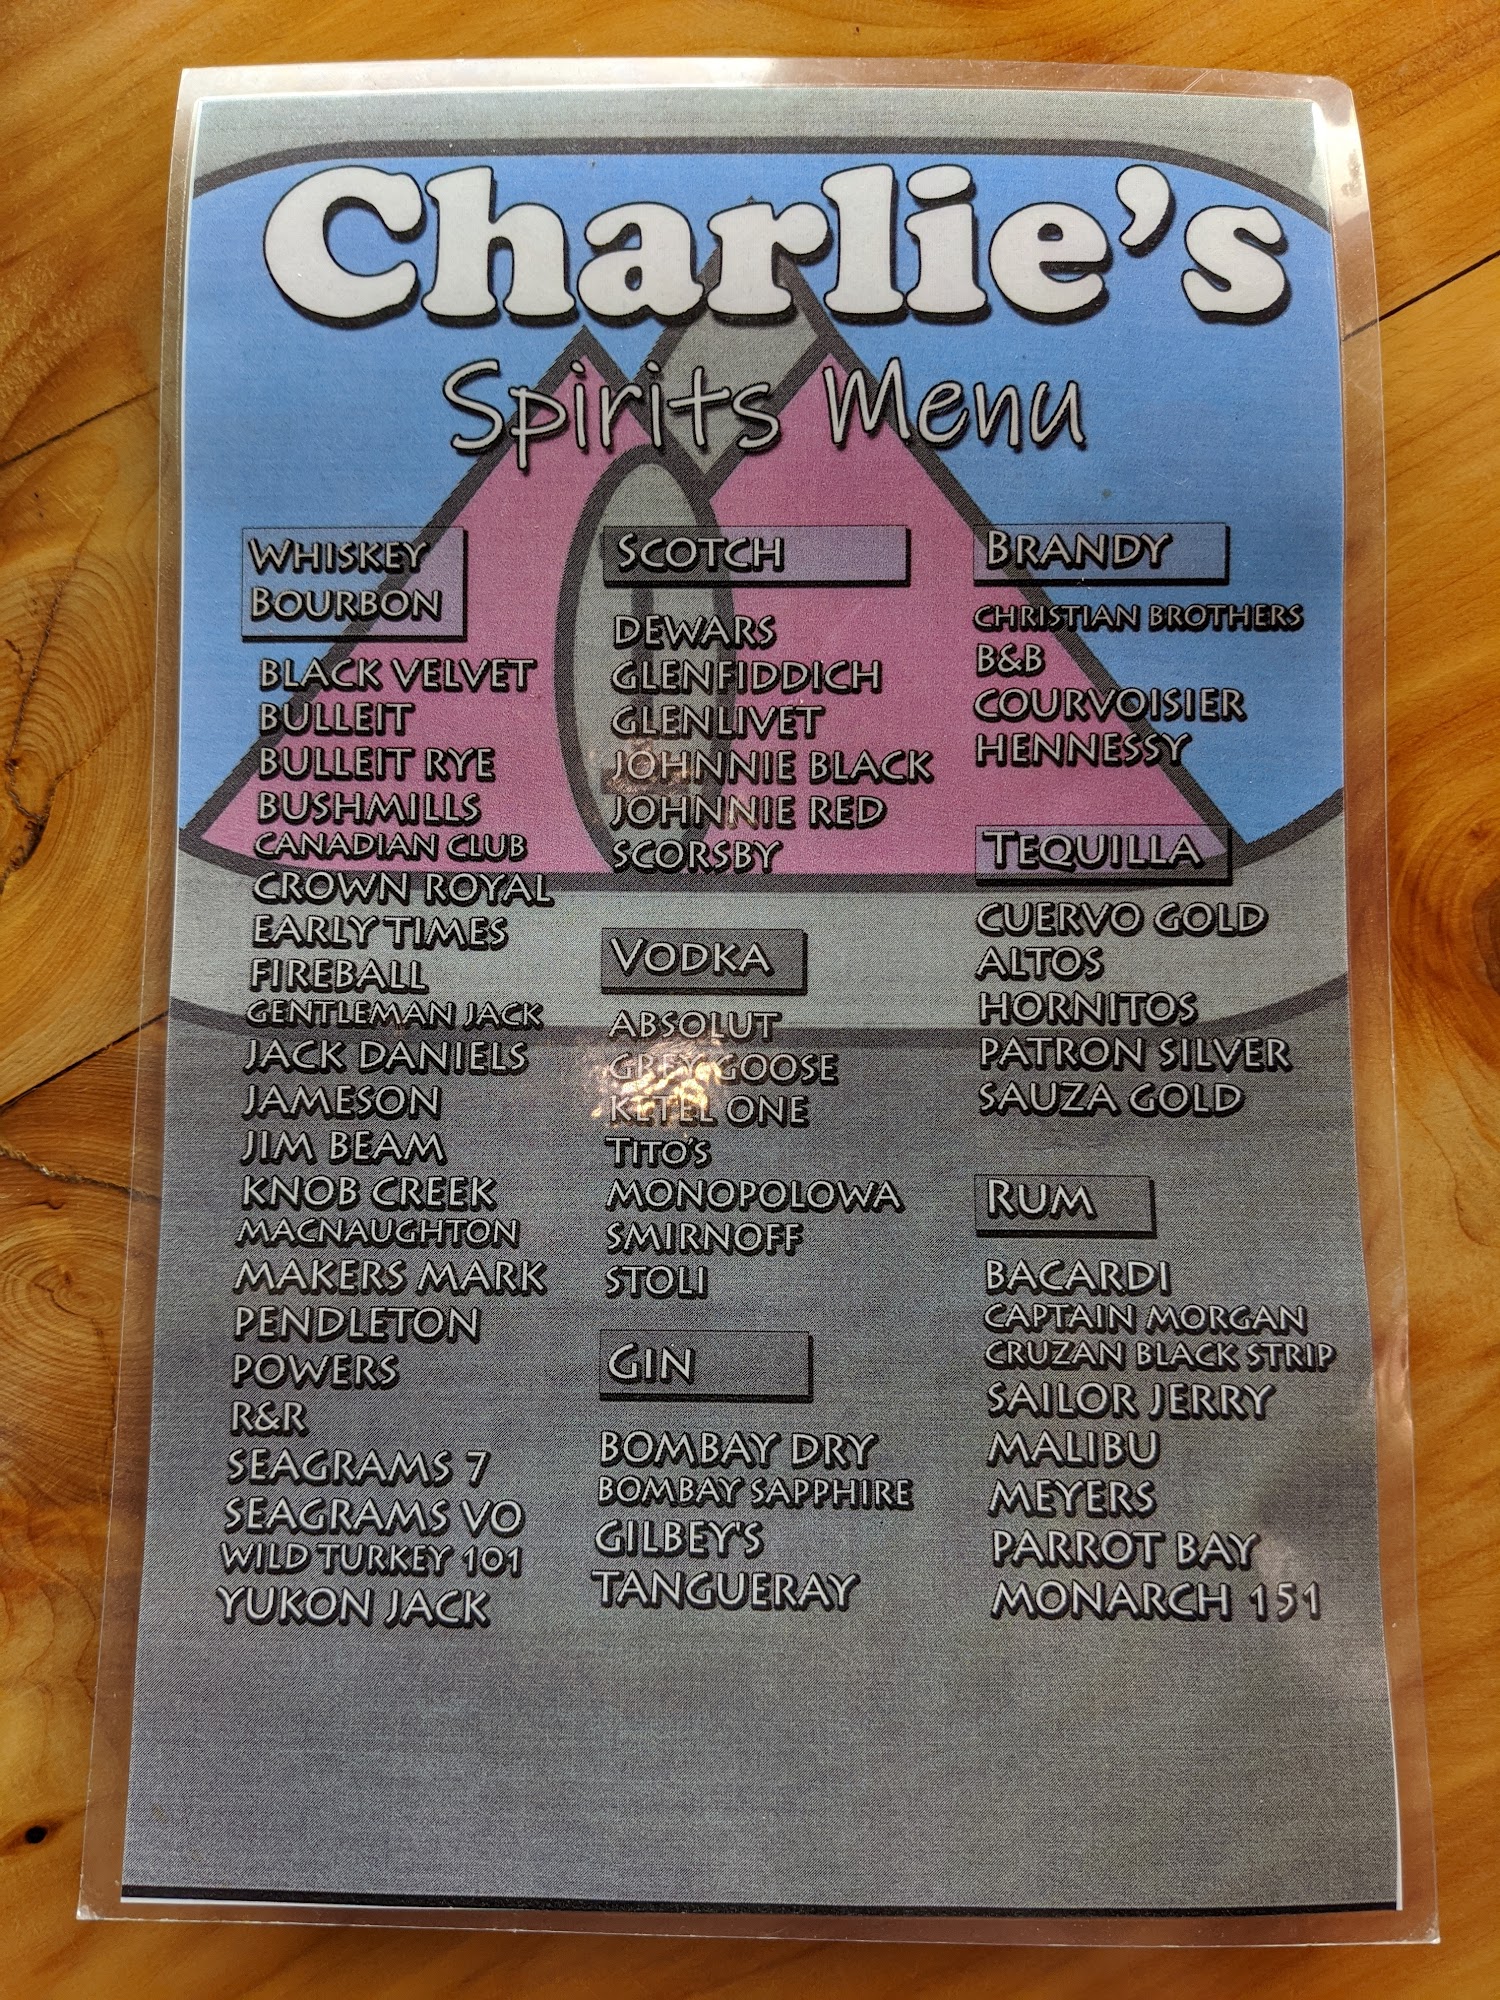 Charlie's
Spirits Menu
WHISKEY
BOURBON
BLACK VELVET
BULLEIT
BULLEIT RYE
BUSHMILLS
CANADIAN CLUB
CROWN ROYAL
EARLY TIMES
FIREBALL
GENTLEMAN JACK
JACK DANIELS
JAMESON
JIM BEAM
KNOB CREEK
MACNAUGHTON
MAKERS MARK
PENDLETON
POWERS
R&R
SEAGRAMS 7
SEAGRAMS VO
WILD TURKEY 101
YUKON JACK
SCOTCH
DEWARS
GLENFIDDICH
GLENLIVET
JOHNNIE BLACK
JOHNNIE RED
SCORSBY
VODKA
ABSOLUT
GREY GOOSE
KETEL ONE
TITO'S
MONOPOLOWA
SMIRNOFF
STOLI
GIN
BOMBAY DRY
BOMBAY SAPPHIRE
GILBEY'S
TANGUERAY
BRANDY
CHRISTIAN BROTHERS
B&B
COURVOISIER
HENNESSY
TEQUILLA
CUERVO GOLD
ALTOS
HORNITOS
PATRON SILVER
SAUZA GOLD
RUM
BACARDI
CAPTAIN MORGAN
CRUZAN BLACK STRIP
SAILOR JERRY
MALIBU
MEYERS
PARROT BAY
MONARCH 151